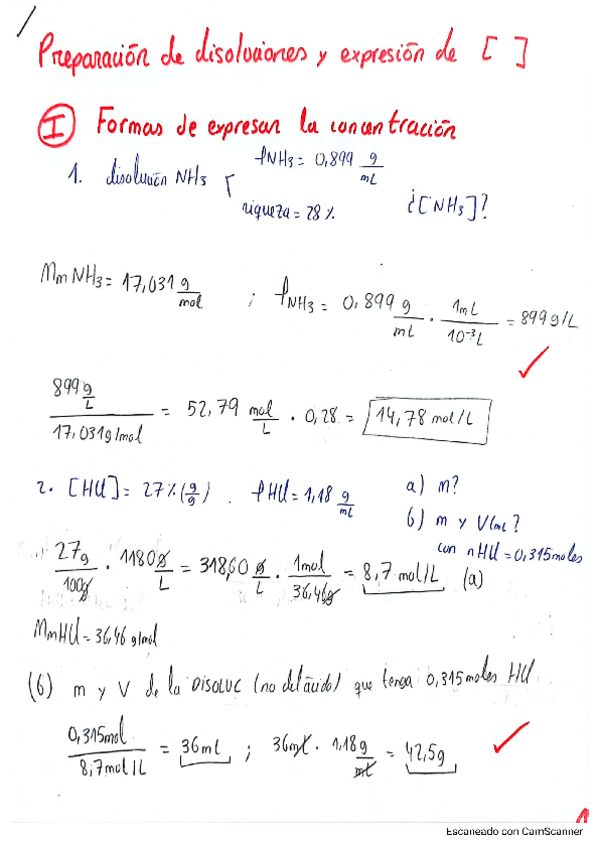 Preparación de disoluciones y expresión de [ ]
I Formas de expresar la concentración
1. disolución NH3 ρNH3 = 0,899 g/mL
riqueza = 28 % ¿[NH3]?
Mm NH3 = 17,031 g/mol ; ρNH3 = 0,899 g/mL · 1mL/10⁻³L = 899 g/L
899 g/L / 17,031 g/mol = 52,79 mol/L · 0,28 = 14,78 mol/L
2. [HCl] = 27 % (g/g) . ρHCl = 1,18 g/mL a) m?
b) m y V(mL?
con nHCl = 0,315 moles
27g/100g · 1180 g/L = 318,60 g/L · 1mol/36,46g = 8,7 mol/L (a)
MmHCl = 36,46 g/mol
(b) m y V de la DISOLUC (no del ácido) que tenga 0,315 moles HCl
0,315mol / 8,7mol/L = 36mL ; 36mL · 1,18g/mL = 42,5g
1
Escaneado con CamScanner